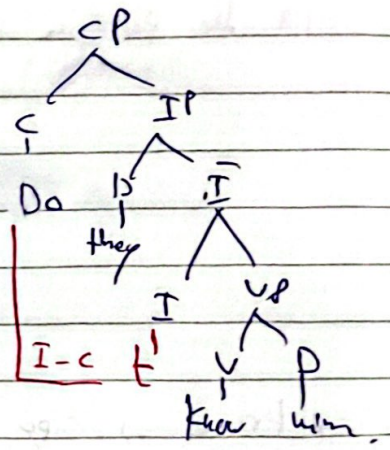 CP
C IP
Do D Ī
they
I VP
I-C t V D
know him.